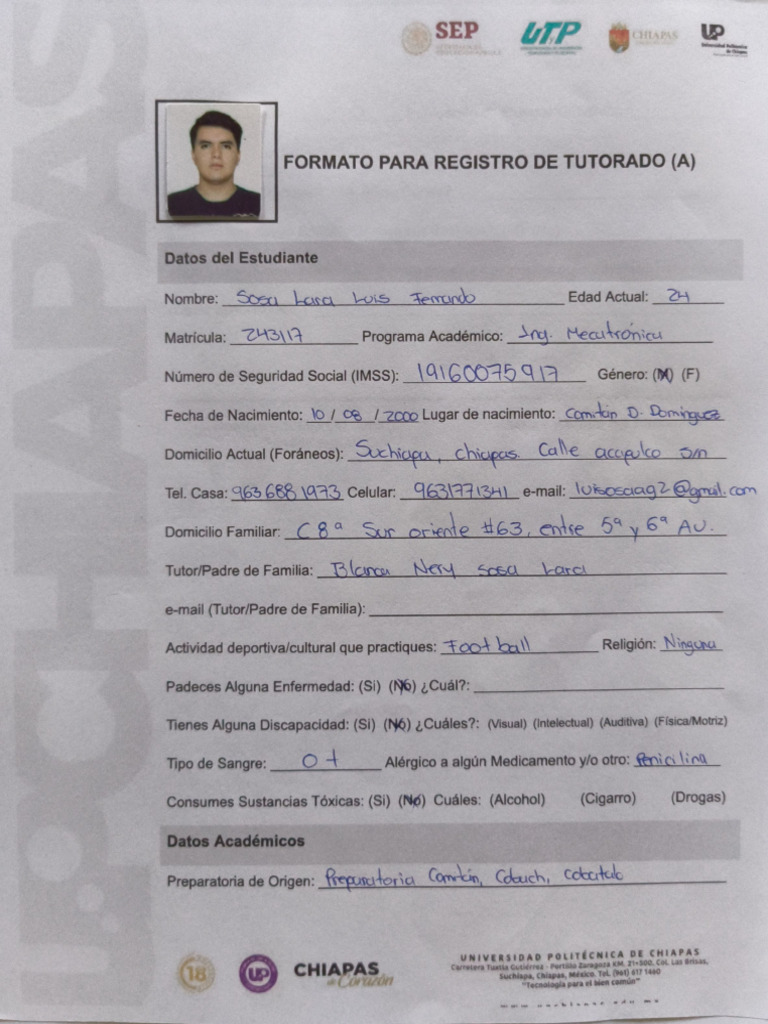 SEP
UTyP
CHIAPAS
UP
Universidad Politécnica
de Chiapas
FORMATO PARA REGISTRO DE TUTORADO (A)
Datos del Estudiante
Nombre: Sosa Lara Luis Fernando Edad Actual: 24
Matrícula: 243117 Programa Académico: Ing. Mecatrónica
Número de Seguridad Social (IMSS): 19160075917 Género: (M) (F)
Fecha de Nacimiento: 10/08/2000 Lugar de nacimiento: Comitán D. Domínguez
Domicilio Actual (Foráneos): Suchiapa, chiapas. Calle acapulco sm
Tel. Casa: 963 688 1973 Celular: 9631771341 e-mail: @gmail.com
Domicilio Familiar: C 8ª Sur oriente #63, entre 5ª y 6ª AV.
Tutor/Padre de Familia: Blanca Nery sosa Lara
e-mail (Tutor/Padre de Familia):
Actividad deportiva/cultural que practiques: Football Religión: Ninguna
Padeces Alguna Enfermedad: (Si) (No) ¿Cuál?:
Tienes Alguna Discapacidad: (Si) (No) ¿Cuáles?: (Visual) (Intelectual) (Auditiva) (Física/Motriz)
Tipo de Sangre: O+ Alérgico a algún Medicamento y/o otro: Penicilina
Consumes Sustancias Tóxicas: (Si) (No) Cuáles: (Alcohol) (Cigarro) (Drogas)
Datos Académicos
Preparatoria de Origen: Preparatoria Comitán, Cobach,
18
UP
CHIAPAS
de Corazón
UNIVERSIDAD POLITÉCNICA DE CHIAPAS
Carretera Tuxtla Gutiérrez - Portillo Zaragoza KM. 21+500, Col. Las Brisas,
Suchiapa, Chiapas, México. Tel. (961) 617 1460
"Tecnología para el bien común"
UPCHIAPAS